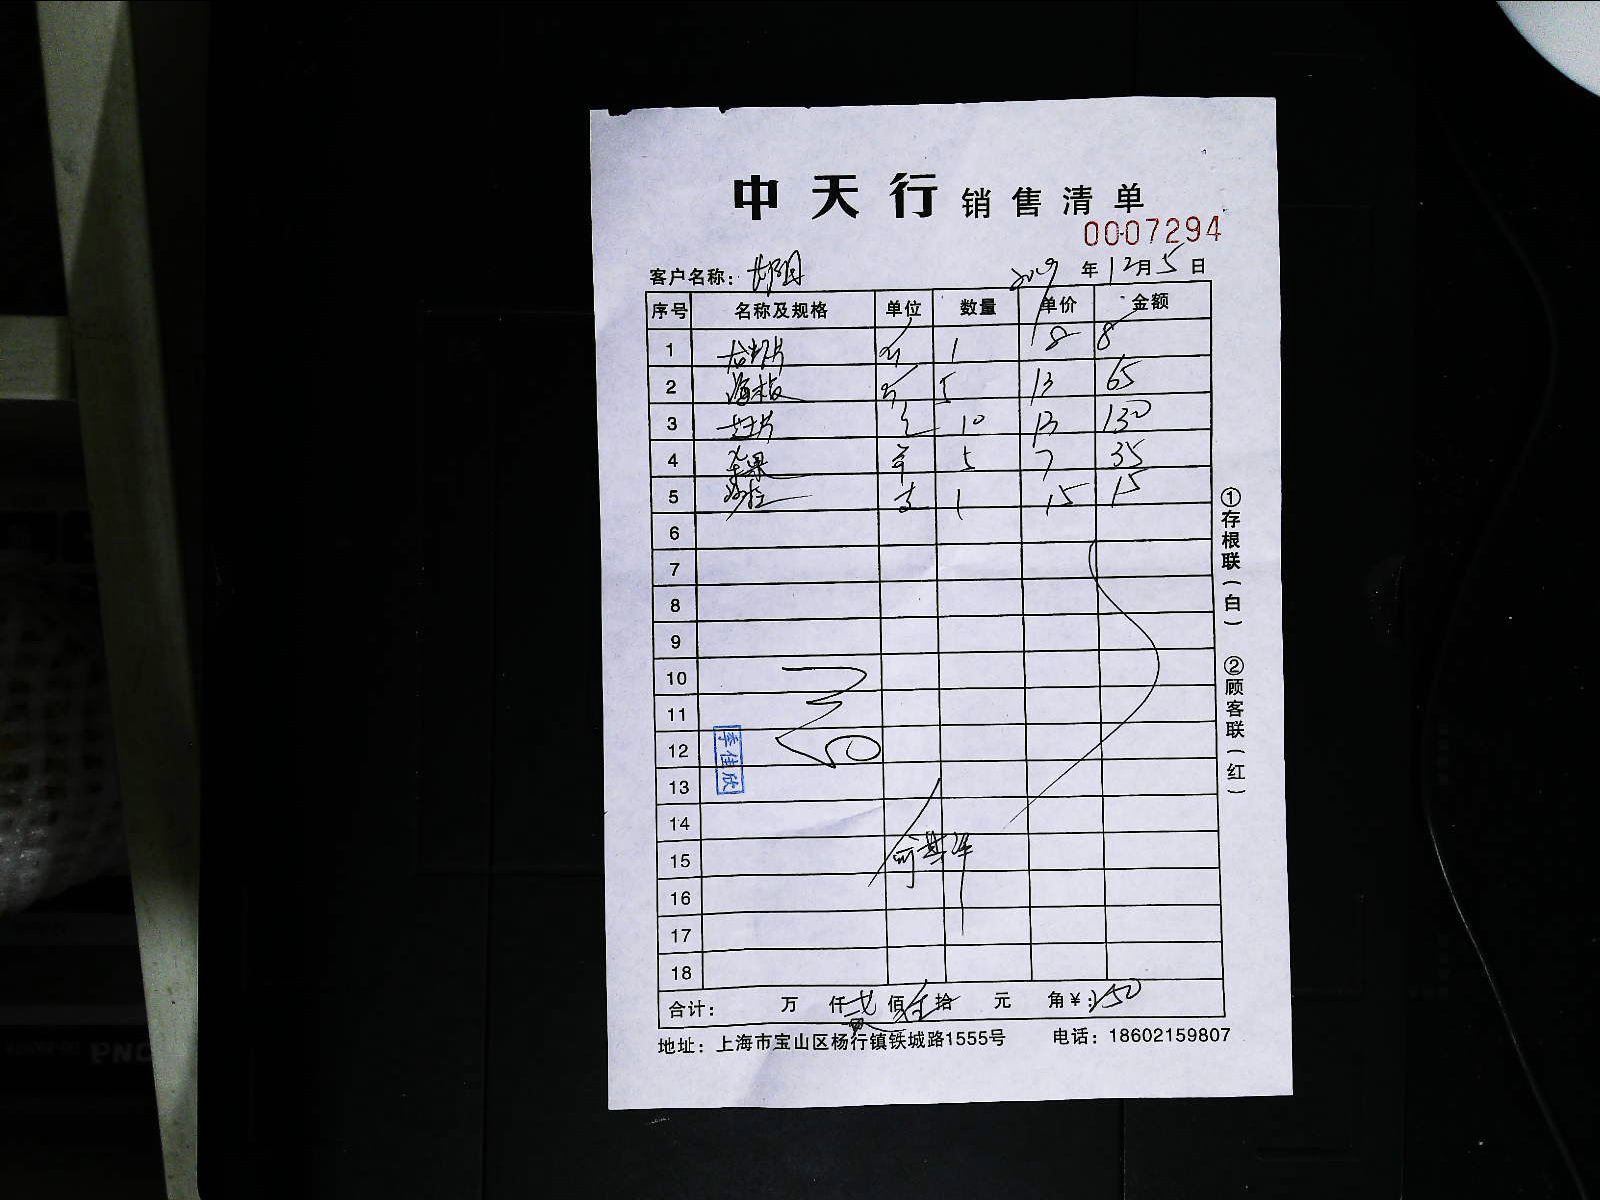 中天行 销售清单
0007294
客户名称：
2019 年 12 月 5 日
序号 名称及规格 单位 数量 单价 金额
1 1 8 8
2 5 13 65
3 10 13 130
4 苹果 5 7 35
5 支 1 15 15
6
7
8
9
10
11
12
13
14
15
16
17
18
李佳欣
合计： 万 仟 贰 佰 伍 拾 元 角 ¥：250
地址：上海市宝山区杨行镇铁城路1555号 电话：18602159807
①存根联（白）
②顾客联（红）